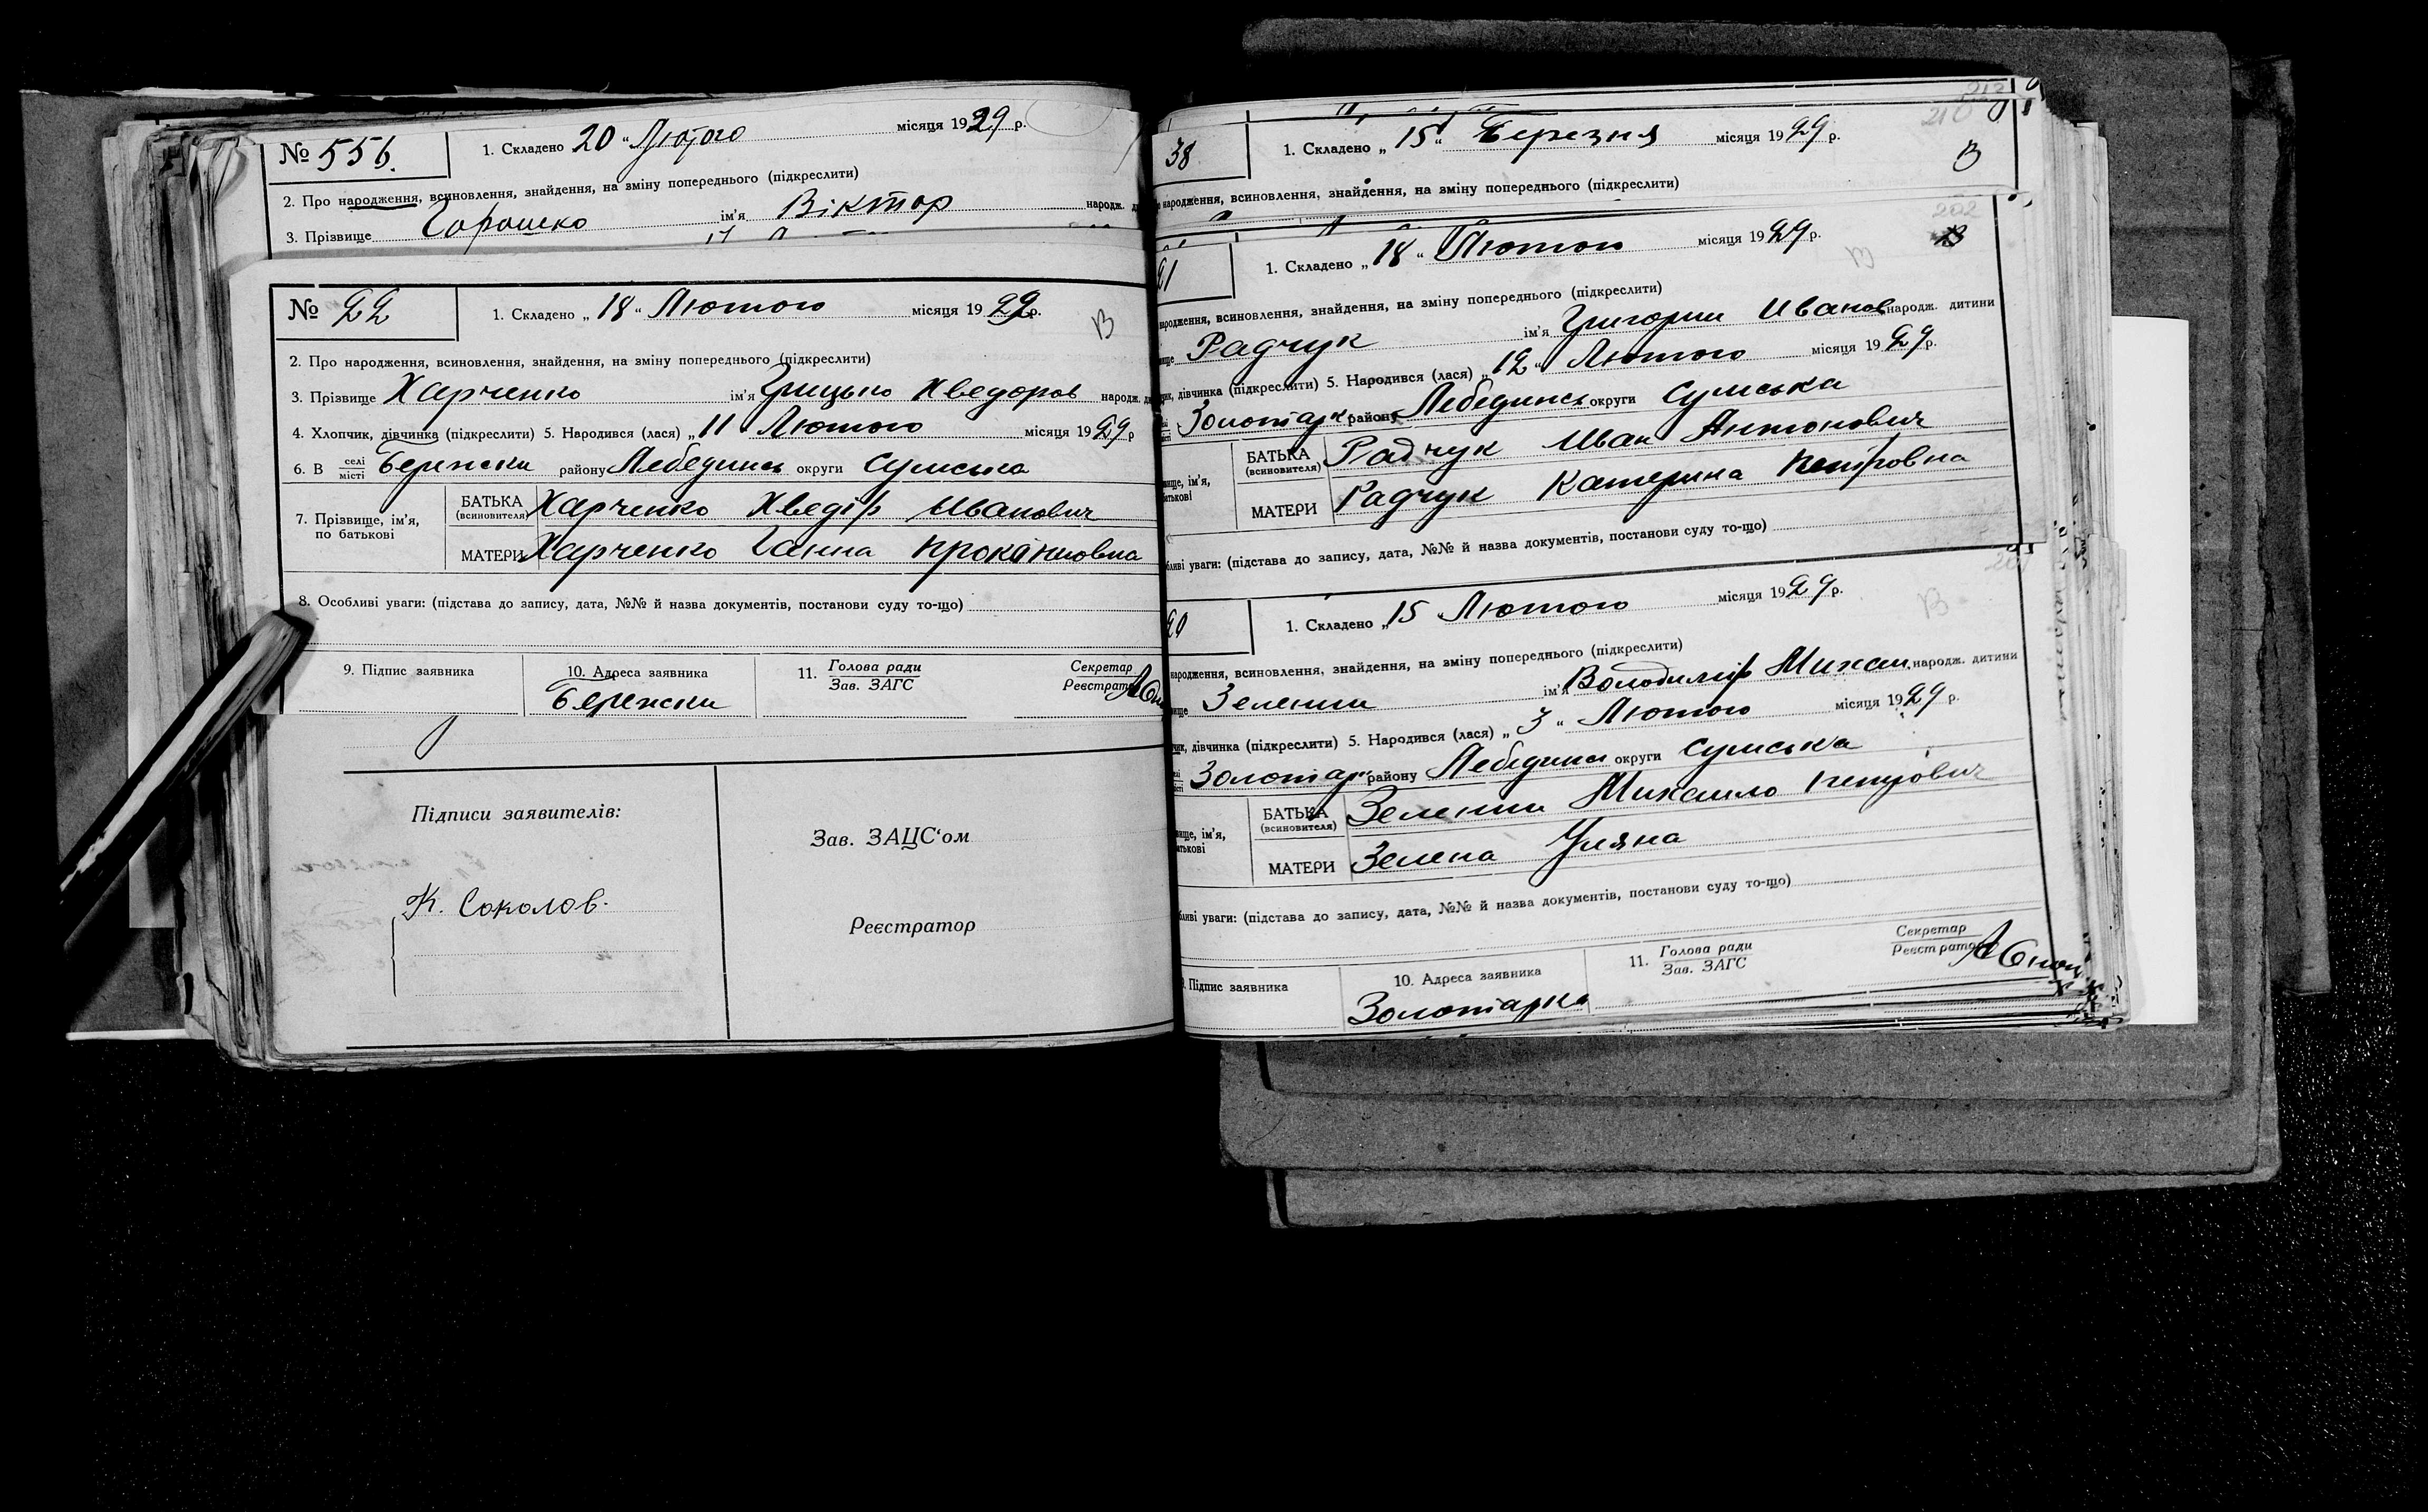 № 556. 1. Складено 20 "Лютого місяця 1929 р.
2. Про народження, всиновлення, знайдення, на зміну попереднього (підкреслити)
3. Прізвище Горошко ім'я Віктор народж.
№ 22 1. Складено „ 18 " Лютого місяця 1929 р. В
2. Про народження, всиновлення, знайдення, на зміну попереднього (підкреслити)
3. Прізвище Харченко ім'я Грицько Хведоров народж.
4. Хлопчик, дівчинка (підкреслити) 5. Народився (лася) „ 11 Лютого місяця 1929 р
6. В селі місті Бережки району Лебединсь округи Сумська
7. Прізвище, ім'я, по батькові
БАТЬКА (всиновителя) Харченко Хведір Иванович
МАТЕРИ Харченко Ганна
8. Особливі уваги: (підстава до запису, дата, №№ й назва документів, постанови суду то-що)
9. Підпис заявника 10. Адреса заявника 11. Голова ради Зав. ЗАГС Секретар Реєстрат
Бережки
Підписи заявителів:
Зав. ЗАЦС'ом
К. Соколов.
Реєстратор
212
210
38 1. Складено „ 15 " Березня місяця 1929 р.
В
народження, всиновлення, знайдення, на зміну попереднього (підкреслити)
202
21 1. Складено „ 18 " Лютого місяця 1929 р. В
народження, всиновлення, знайдення, на зміну попереднього (підкреслити)
Радчук ім'я Григорий Иванов народж. дитини
дівчинка (підкреслити) 5. Народився (лася) „ 12 " Лютого місяця 1929 р.
Золотар району Лебединсь округи Сумська
БАТЬКА (всиновителя) Радчук Иван Антонович
МАТЕРИ Радчук Катерина Петровна
уваги: (підстава до запису, дата, №№ й назва документів, постанови суду то-що)
201
20 1. Складено „ 15 Лютого місяця 1929 р. В
народження, всиновлення, знайдення, на зміну попереднього (підкреслити)
Зелений ім'я Володимир Михай. народж. дитини
дівчинка (підкреслити) 5. Народився (лася) „ 3 " Лютого місяця 1929 р.
Золотар району Лебединсь округи Сумська
БАТЬКА (всиновителя) Зелений Михайло Петрович
МАТЕРИ Зелена Уляна
уваги: (підстава до запису, дата, №№ й назва документів, постанови суду то-що)
Підпис заявника 10. Адреса заявника 11. Голова ради Зав. ЗАГС Секретар Реєстратор
Золотарка